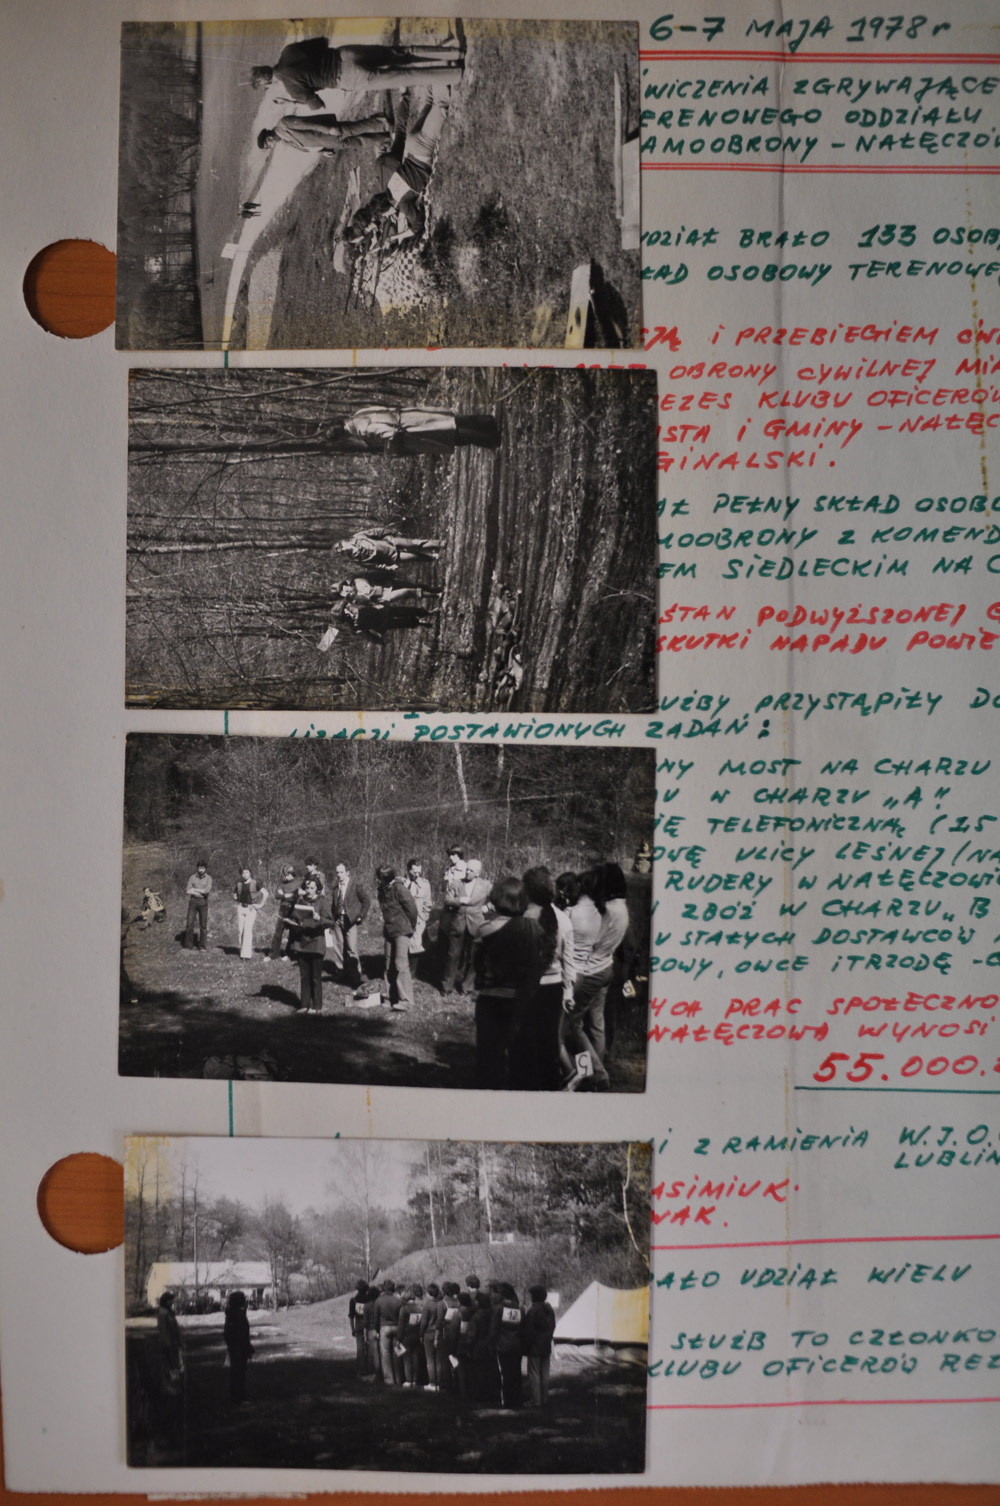 6-7 MAJA 1978r
WICZENIA ZGRYWAJĄCE
ERENOWEGO ODDZIAŁU
AMOOBRONY - NAŁĘCZÓW
UDZIAŁ BRAŁO 133 OSOB
ŁAD OSOBOWY TERENOWE
JĄ I PRZEBIEGIEM ĆWI
OBRONY CYWILNEJ MIA
EZES KLUBU OFICERÓW
STA I GMINY - NAŁĘC
GINALSKI.
AŁ PEŁNY SKŁAD OSOBO
MOOBRONY Z KOMEND
EM SIEDLECKIM NA C
STAN PODWYŻSZONEJ G
SKUTKI NAPADU POWIE
UŻBY PRZYSTĄPIŁY DO
LIZACJI POSTAWIONYCH ZADAŃ:
NY MOST NA CHARZU
U W CHARZU „A"
IĘ TELEFONICZNĄ (15
OWĘ ULICY LEŚNEJ (NA
RUDERY W NAŁĘCZOWIE
I ZBÓŻ W CHARZU „B
U STAŁYCH DOSTAWCÓW
ROWY, OWCE I TRZODĘ - C
YCH PRAC SPOŁECZNO
NAŁĘCZOWA WYNOSI
55.000.
I Z RAMIENIA W.I.O.
LUBLIN
ASIMIUK.
WAK.
RAŁO UDZIAŁ WIELU
SŁUŻB TO CZŁONKO
KLUBU OFICERÓW REZ